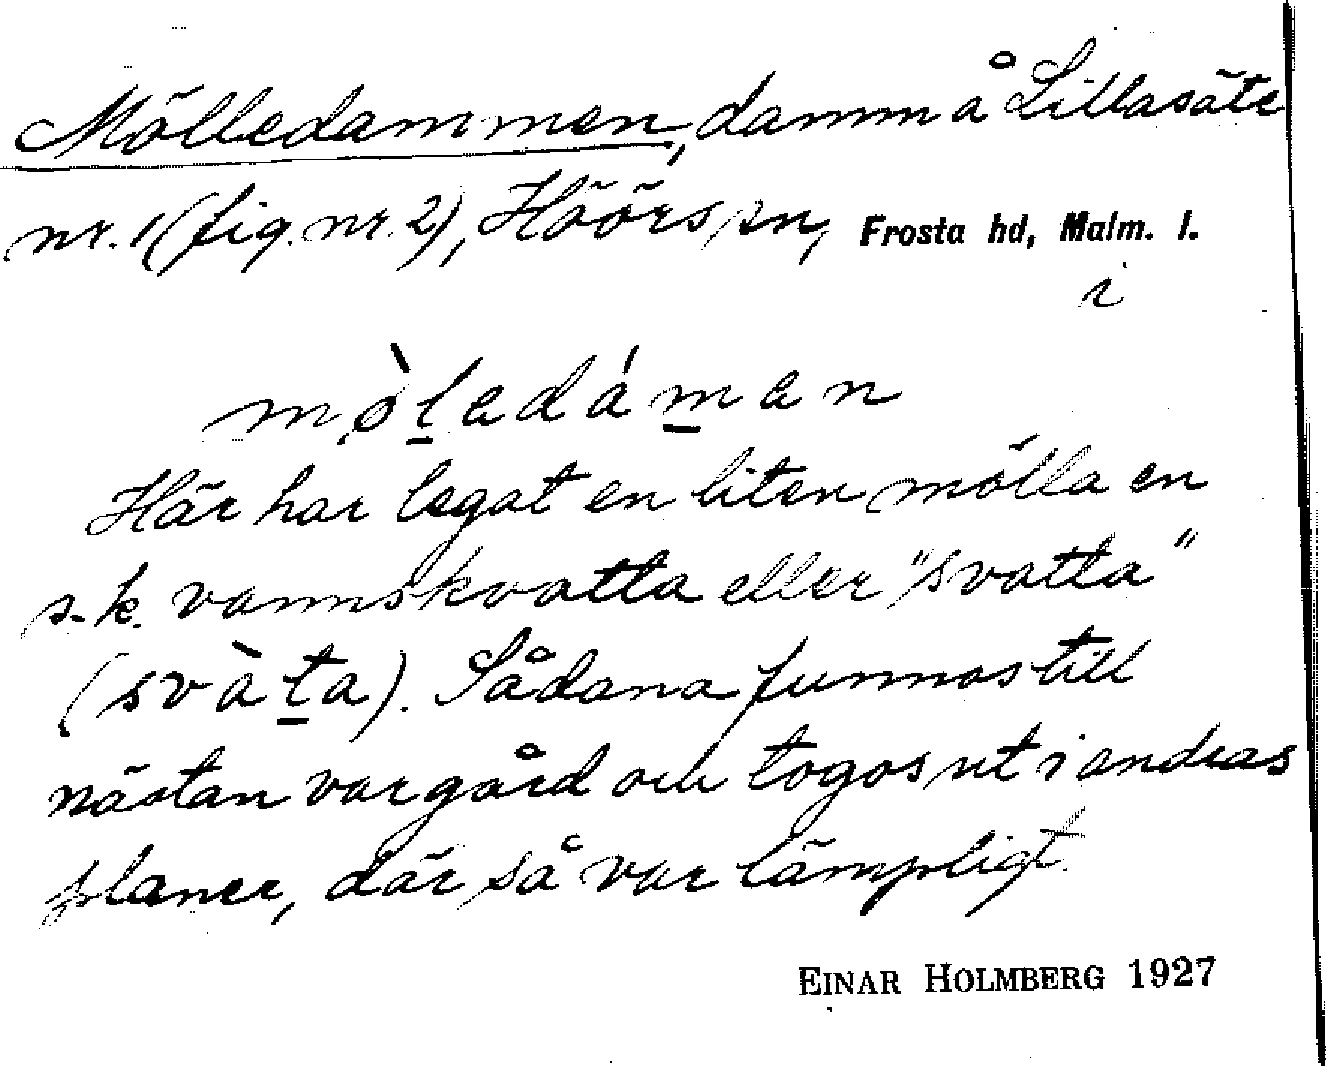 Mölledammen, damm å Lillasäte
nr. 1 (fig. nr. 2), Höörs sn, Frosta hd, Malm. l.
i
mø̀ḻedám̱en
Här har legat en liten mölla en
s.k. vannskvatta eller "svatta"
(svàṯa). Sådana funnos till
nästan var gård och togos ut i andras
planer, där så var lämpligt.
EINAR HOLMBERG 1927